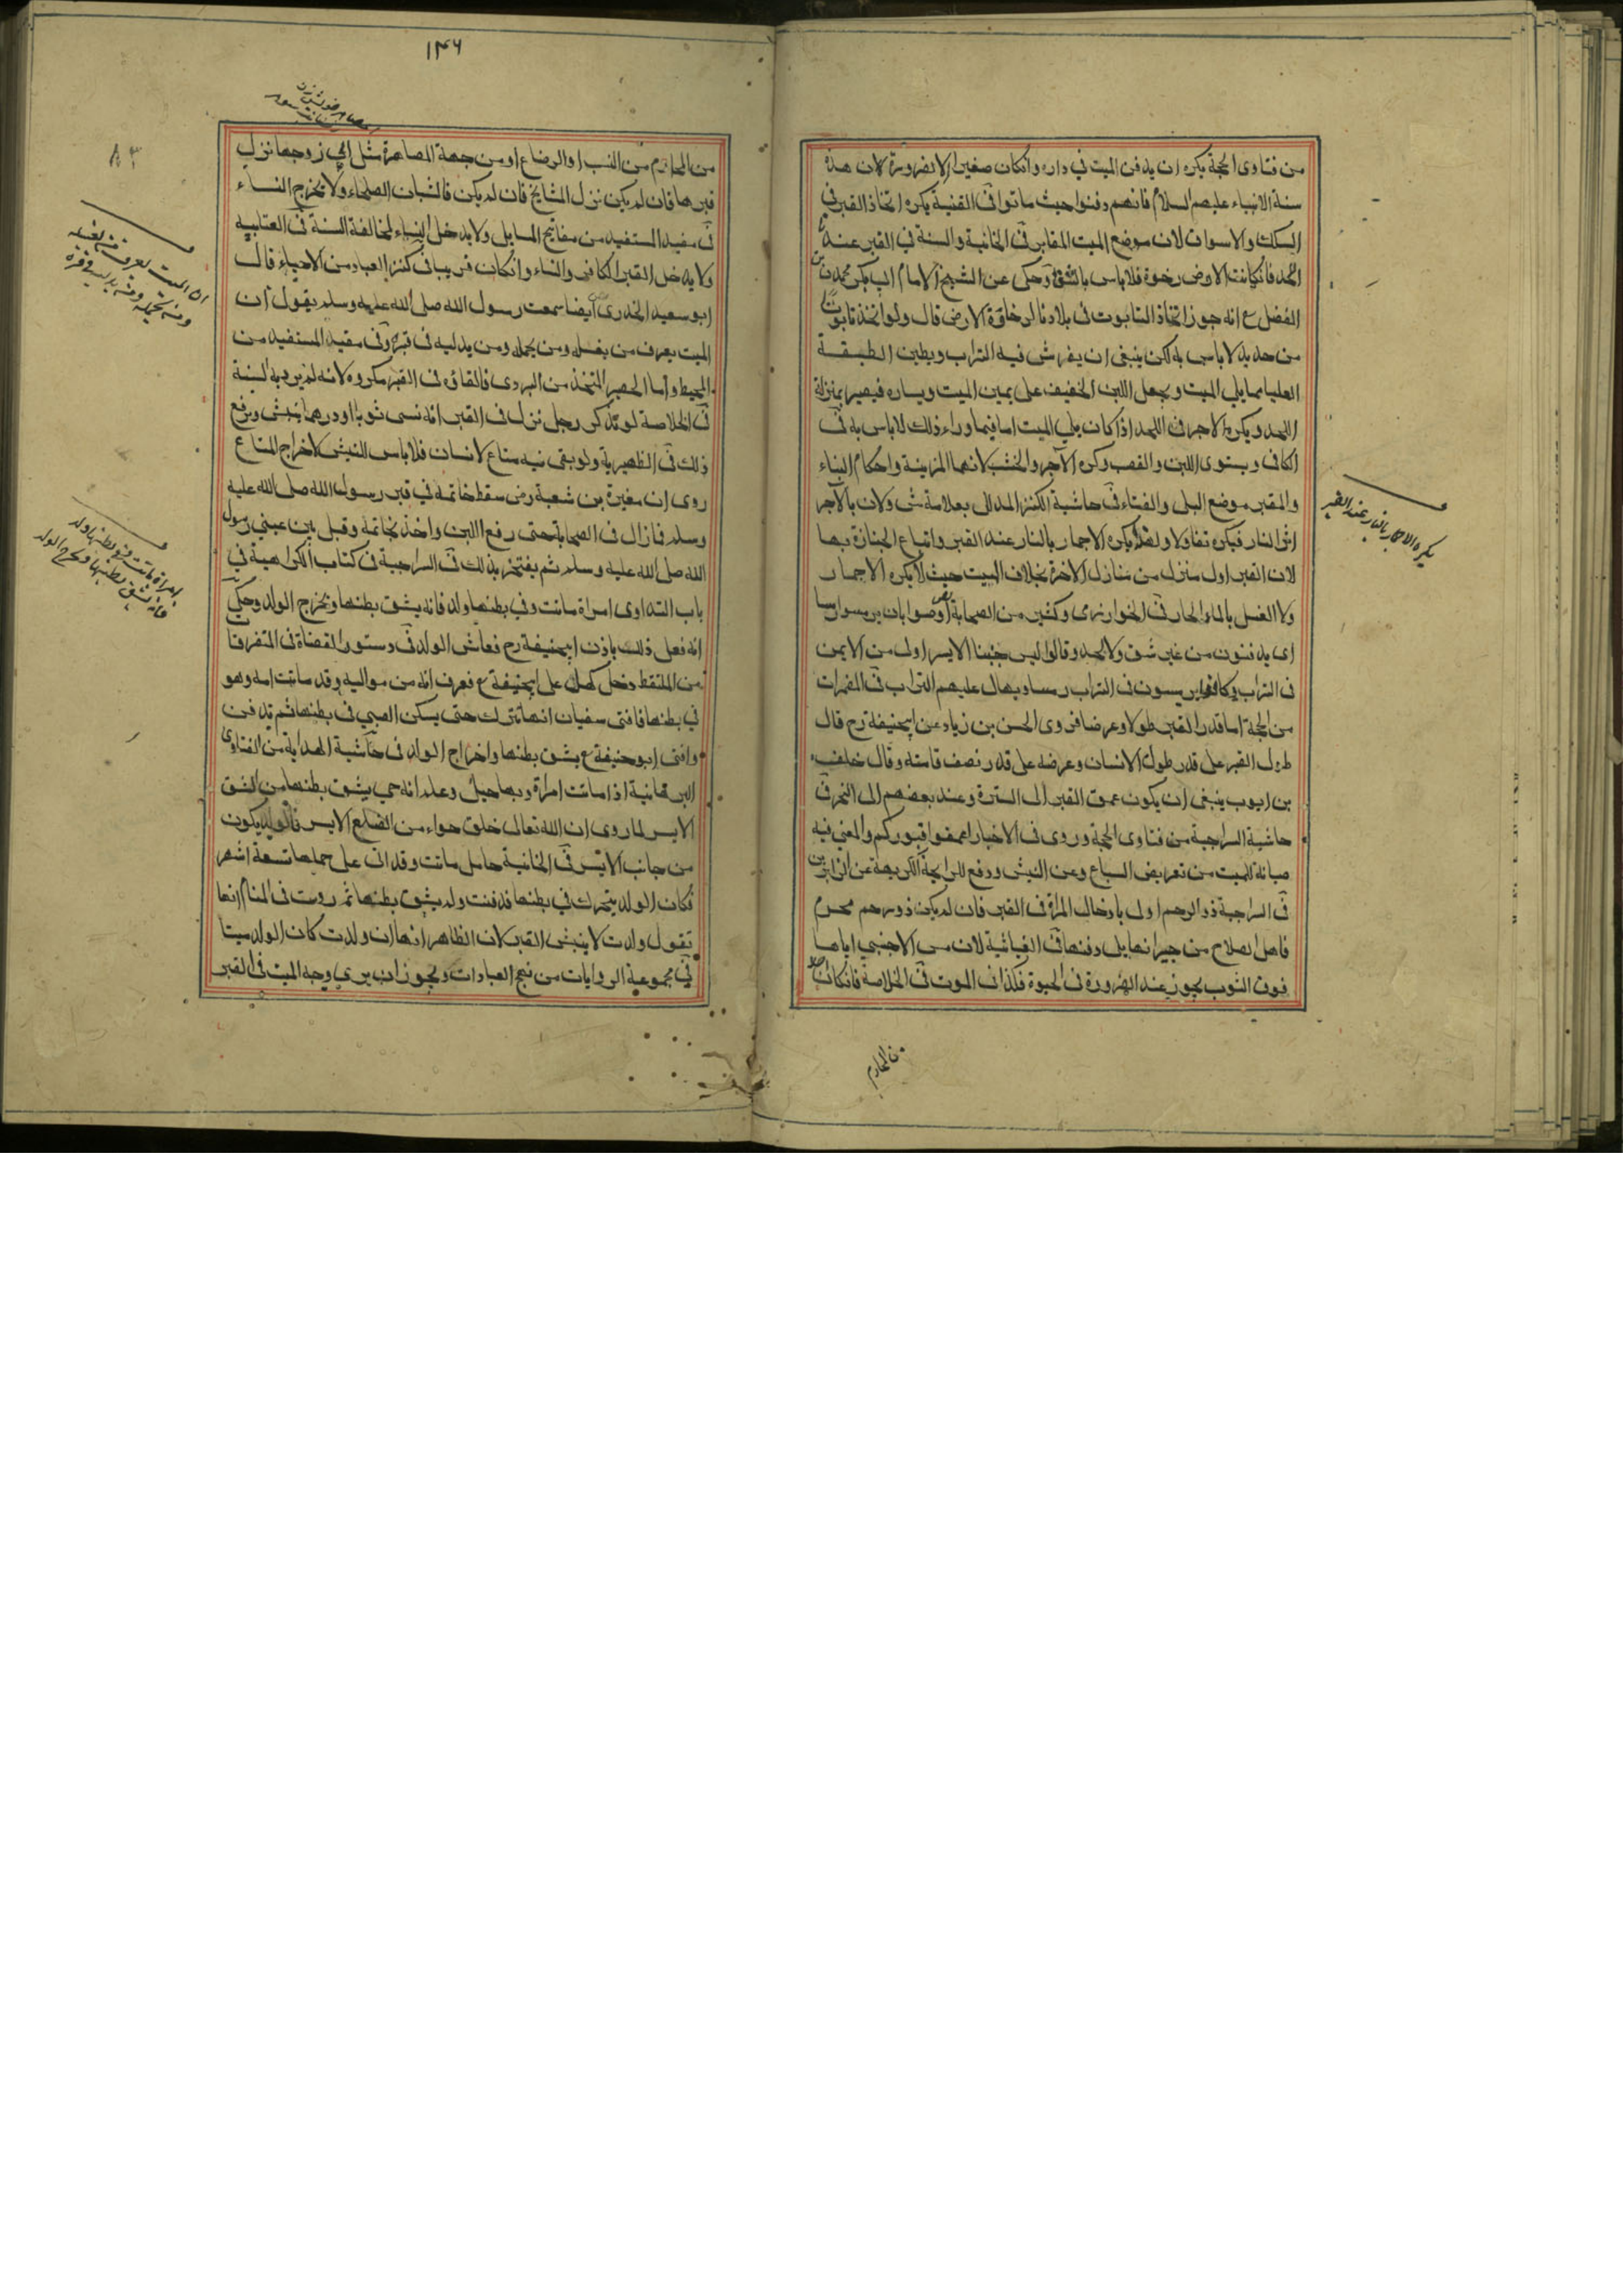 من فتاوى الحجة يكره ان يدفن الميت في داره وانكان صغيرا لا لضرورة لان هذه
سنة الانبياء عليهم السلام فانهم دفنوا حيث ماتوا فى القنية يكره اتخاذ القبر فى
السكك والاسواق لان موضع الميت المقابر فى الخانية والسنة في القبر عندنا
اللحد فانكانت الارض رخوة فلا باس بالشق وحكى عن الشيخ الامام ابى بكر محمد بن
الفضل ع انه جوز اتخاذ التابوت فى بلادنا لرخاوة الارض قال ولو اتخذ تابوت
من حديد لا باس به لكن ينبغى ان يفرش فيه التراب ويطين الطبقة
العليا مما يلي الميت ويجعل اللبن الخفيف على يمين الميت ويساره فيصير بمنزلة
اللحد ويكره الاجر فى اللحد اذا كان يلي الميت اما فيما وراء ذلك لا باس به فى
الكافى ويستوى اللبن والقصب وكره الآجر والخشب لانهما للزينة واحكام البناء
والمقبر موضع البلى والفناء فى حاشية الكنز المدالى بعلامة ش ولان بالآجر
اثر النار فيكره تفاولا ولهذا يكره الاجمار بالنار عند القبر واتباع الجنازة بها
لان القبر اول منزل من منازل الاخرة بخلاف البيت حيث لا يكره الاجمار
ولا الغسل بالماء الحار فى الخوارزمى وكثير من الصحابة اوصوا بان يرمسوا رمسا
اى يدفنون من غير شق ولا لحد وقالوا ليس جنبنا الايسر اولى من الايمن
فى التراب فكانوا يرمسون فى التراب رمسا ويهال عليهم التراب فى المضمرات
من الحجة اما قدر القبر طولا وعرضا فروى الحسن بن زياد عن ابيحنيفة رح قال
طول القبر على قدر طول الانسان وعرضه على قدر نصف قامته وقال خلف
بن ايوب ينبغى ان يكون عمق القبر الى السترة وعند بعضهم الى النحر فى
حاشية السراجية من فتاوى الحجة وروى فى الاخبار اعمقوا قبوركم والمعنى فيه
صيانة للميت من تعريض السباع وعن النبش ودفع للرايحة الكريهة عن الزايرين
فى السراجية ذو الرحم اولى بادخال المراة فى القبر فان لم يكن ذو رحم محرم
فاهل الصلاح من جيرانها يلى دفنها فى الغياثية لان مس الاجنبي اياها
فوق الثوب يجوز عند الضرورة فى الحيوة فكذا فى الموت فى الخلاصة فانكان
من المحارم
يكره الاجمار بالنار عند القبر
١٣٦
٨٣
من المحارم من النسب او الرضاع او من جهة المصاهرة مثل ابي زوجها نزل
قبرها فان لم يكن نزل المشايخ فان لم يكن فالشبان الصلحاء ولا يخرج النساء
فى مفيد المستفيد من مفاتيح المسايل ولا يدخل النساء لمخالفة السنة فى العتابيه
ولا يدخل القبر الكافر والنساء وانكان قريبا فى كنز العباد من الاحياء قال
ابو سعيد الخدرى ايضا سمعت رسول الله صلى الله عليه وسلم يقول ان
الميت يعرف من يغسله ومن يحمله ومن يدليه فى قبره وفى مفيد المستفيد من
المحيط واما الحصير المتخذ من البردى فالقاؤه فى القبر مكروه لانه لم يرد به السنة
فى الخلاصة لو تذكر رجل نزل فى القبر انه نسى ثوبا او درهما ينبش ويرفع
ذلك فى الظهيرية ولو بقى فيه متاع لانسان فلا باس للنبش لاخراج المتاع
روى ان مغيرة بن شعبة رض سقط خاتمه في قبر رسول الله صلى الله عليه
وسلم فما زال فى الصحابة حتى رفع اللبن واخذ بخاتمه وقبل بين عيني رسول
الله صلى الله عليه وسلم ثم يفتخر بذلك فى السراجية فى كتاب الكراهية في
باب التداوى امراة ماتت وفي بطنها ولد فانه يشق بطنها ويخرج الولد وحكي
انه فعل ذلك باذن ابيحنيفة رح فعاش الولد فى دستور القضاة فى المتفرقات
من الملتقط دخل كهل على ابيحنيفة ع فعرف انه من مواليه وقد ماتت امه وهو
في بطنها فافتى سفيان انها تترك حتى يسكن الصبي فى بطنها ثم تدفن
وافتى ابو حنيفة ع بشق بطنها واخراج الولد فى حاشية الهداية من الفتاوى
البرهانية اذا ماتت امراة وبها حبل وعلم انه حي يشق بطنها من الشق
الايسر لما روى ان الله تعالى خلق حواء من الضلع الايسر فالولد يكون
من جانب الايسر فى الخانية حامل ماتت وقد اتى على حملها تسعة اشهر
فكان الولد يتحرك في بطنها فدفنت ولم يشق بطنها ثم رويت فى المنام انها
تقول ولدت لا ينبش القبر لان الظاهر انها ان ولدت كان الولد ميتا
في مجموعة الروايات من نهج العبادات ويجوز ان يرى وجه الميت فى القبر
ان الميت يعرف من يغسله
ومن يحمله ومن يدليه فى قبره
امراة ماتت وفي بطنها ولد
فانه يشق بطنها ويخرج الولد